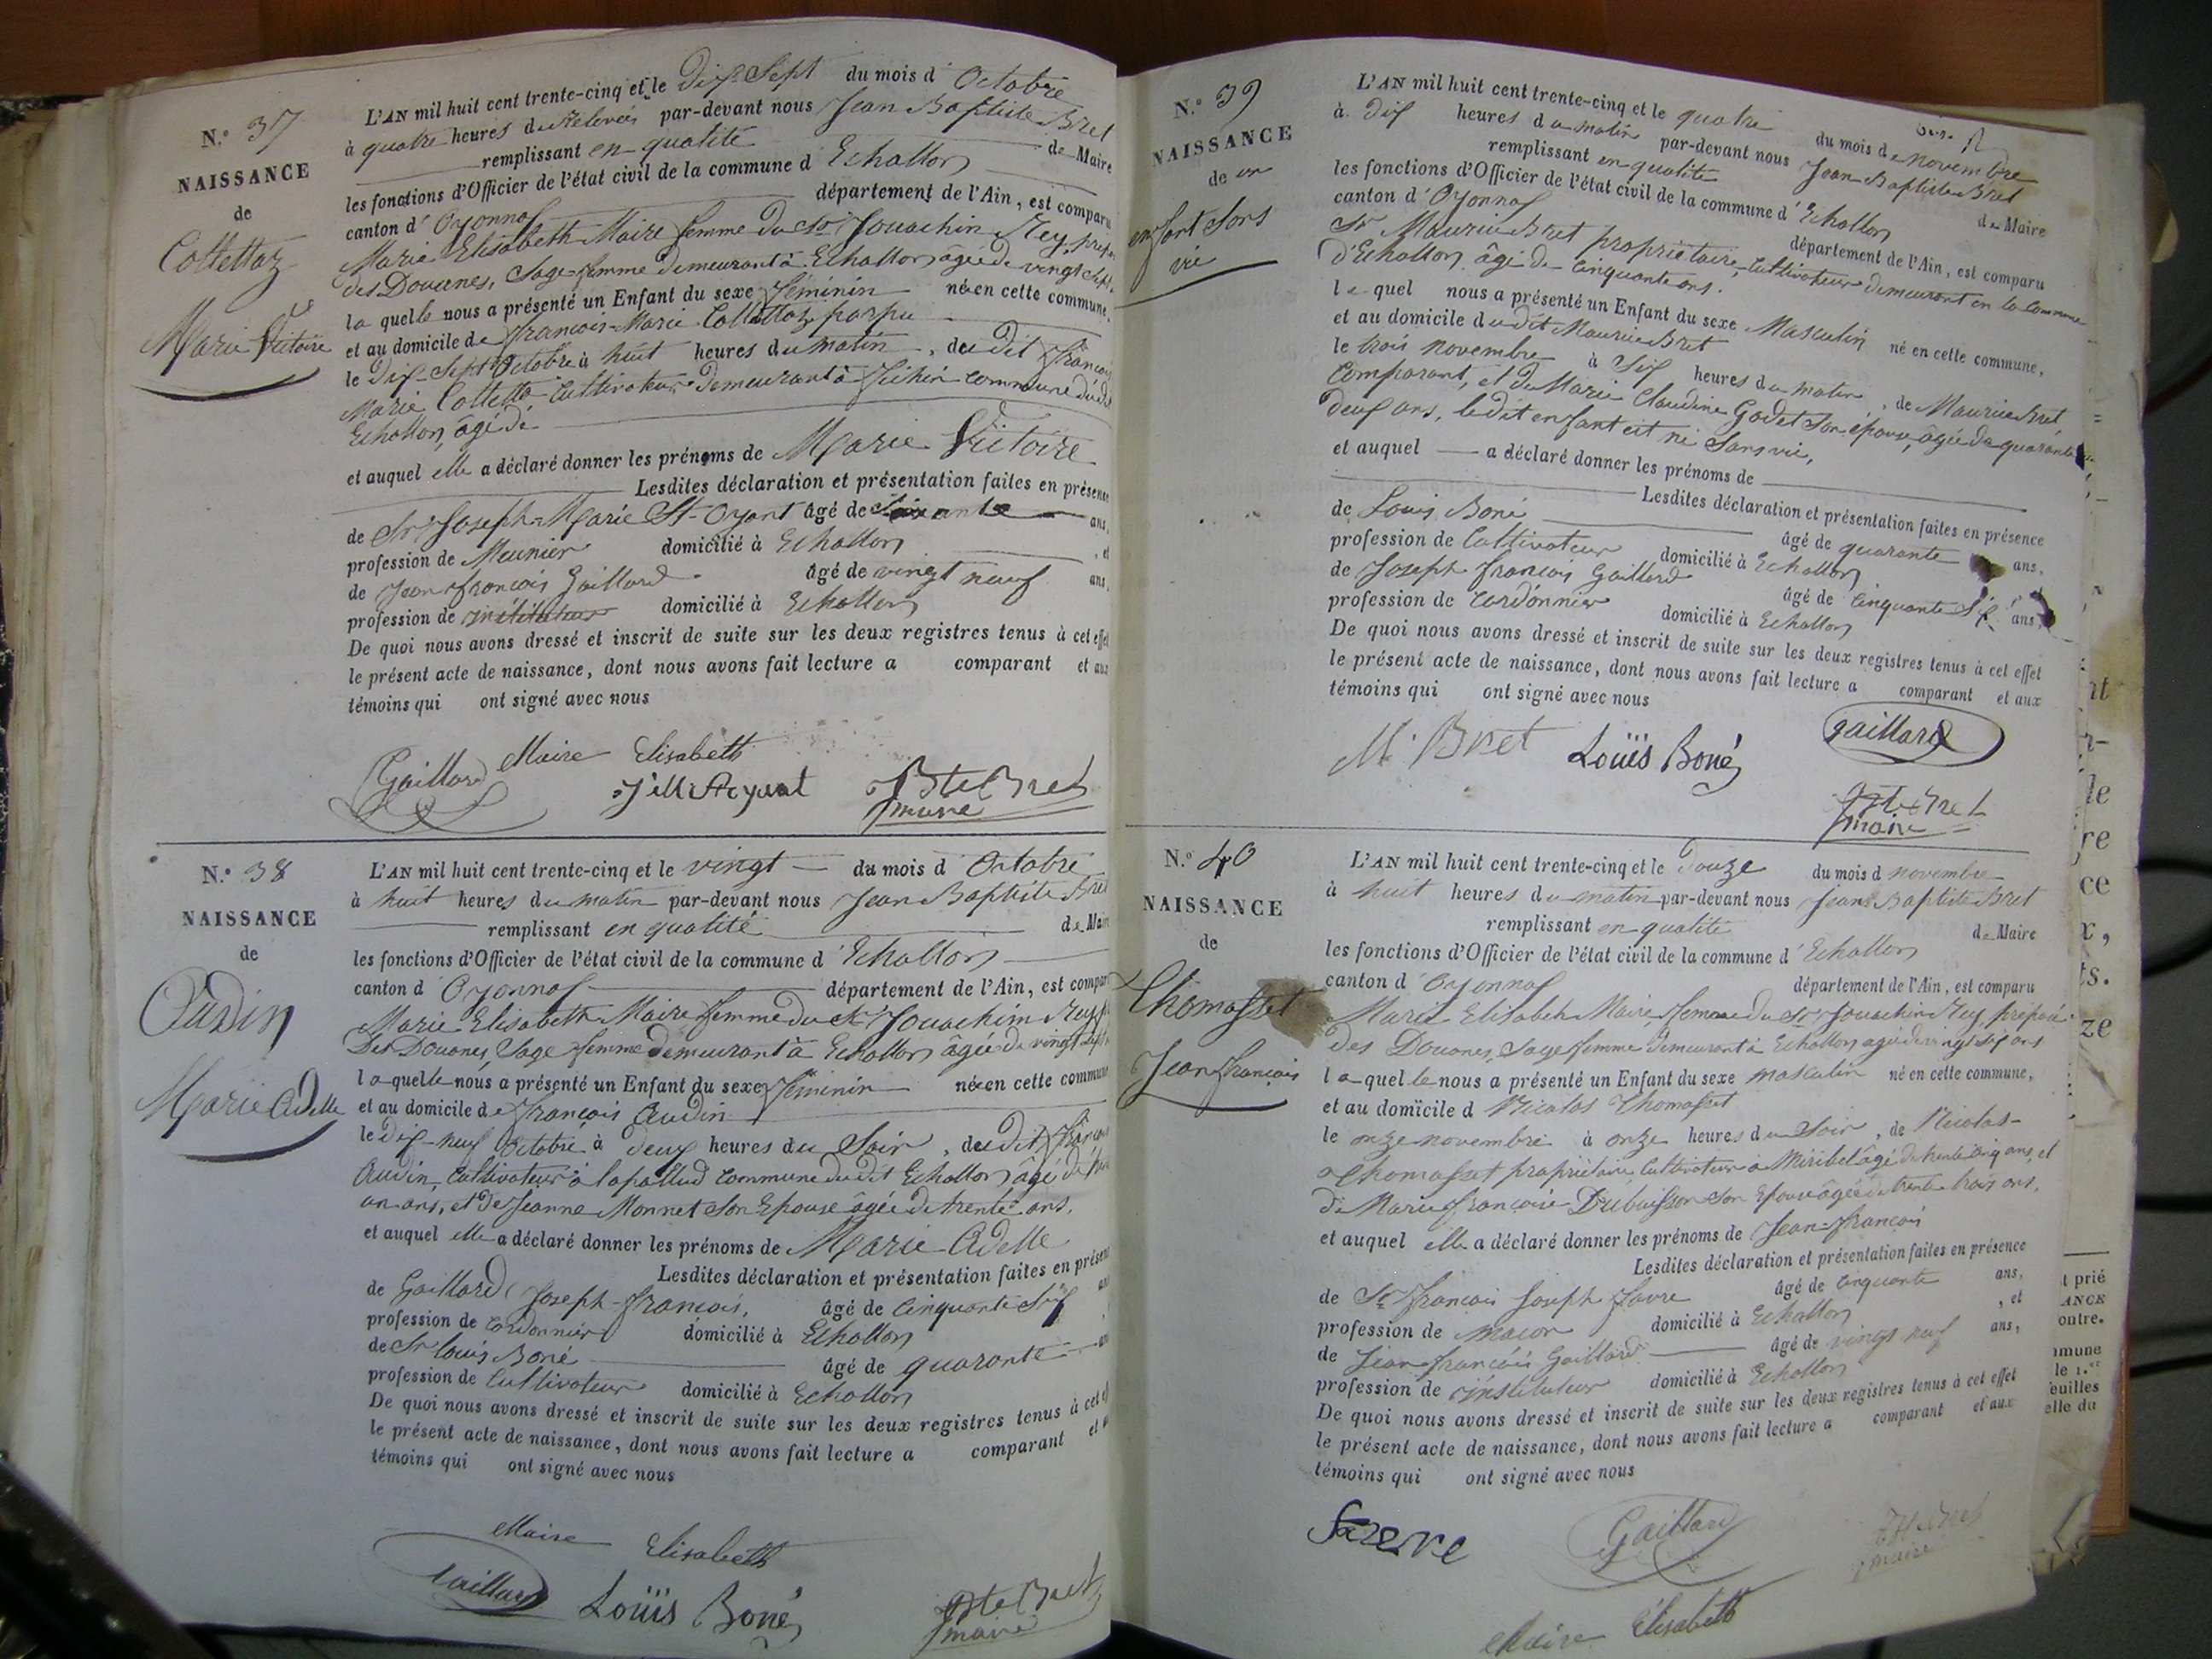 N.° 37
NAISSANCE
de
Cottettaz
Marie Victoire
L'AN mil huit cent trente-cinq et le Dix-Sept du mois d'Octobre
à quatre heures du relevée par-devant nous Jean Baptiste Bret
remplissant en qualité de Maire
les fonctions d'Officier de l'état civil de la commune d'Echallon
canton d'Oyonnax département de l'Ain, est comparu
Marie Elisabeth Maire femme du Sr Jouachin Rey prépo
des Douanes, Sage-femme demeurant à Echallon âgée de vingt sept
laquelle nous a présenté un Enfant du sexe féminin née en cette commune,
et au domicile de françois-Marie Cottettaz
le Dix-Sept Octobre à huit heures du matin, du dit françois
Marie Cottetta Cultivateur demeurant à commune du dit
Echallon, âgé de
et auquel elle a déclaré donner les prénoms de Marie Victoire
Lesdites déclaration et présentation faites en présence
de Sr Joseph-Marie St-Oyant âgé de ans,
profession de Meunier domicilié à Echallon, et
de Jean françois Gaillard âgé de vingt neuf ans,
profession de instituteur domicilié à Echallon
De quoi nous avons dressé et inscrit de suite sur les deux registres tenus à cet effet
le présent acte de naissance, dont nous avons fait lecture a comparant et aux
témoins qui ont signé avec nous
Gaillard Maire Elisabeth
JBte Bret
maire
N.° 38
NAISSANCE
de
Audin
Marie Adelle
L'AN mil huit cent trente-cinq et le vingt du mois d'Octobre
à huit heures du matin par-devant nous Jean Baptiste Bret
remplissant en qualité de Maire
les fonctions d'Officier de l'état civil de la commune d'Echallon
canton d'Oyonnax département de l'Ain, est comparu
Marie Elisabeth Maire femme du Sr Jouachim Rey
Des Douanes, Sage femme demeurant à Echallon âgée de vingt sept
laquelle nous a présenté un Enfant du sexe féminin née en cette commune
et au domicile de françois Audin
le dix-neuf Octobre à deux heures du Soir, du dit françois
Audin, Cultivateur à lapallud commune du dit Echallon, âgé de
un ans, et de Jeanne Monnet son Epouse âgée de trente ans.
et auquel elle a déclaré donner les prénoms de Marie Adelle
Lesdites déclaration et présentation faites en présen
de Gaillard Joseph-françois, âgé de cinquante Six an
profession de cordonnier domicilié à Echallon
de Sr Louis Boné âgé de quarante an
profession de Cultivateur domicilié à Echallon
De quoi nous avons dressé et inscrit de suite sur les deux registres tenus à cet
le présent acte de naissance, dont nous avons fait lecture a comparant et
témoins qui ont signé avec nous
Maire Elisabeth
Gaillard Louïs Boné JBte Bret
maire
N.° 39
NAISSANCE
de un
enfant Sans
vie
L'AN mil huit cent trente-cinq et le quatre du mois de novembre
à dix heures du matin par-devant nous Jean-Baptiste Bret
remplissant en qualité de Maire
les fonctions d'Officier de l'état civil de la commune d'Echallon
canton d'Oyonnax département de l'Ain, est comparu
Sr Maurice Bret propriétaire-Cultivateur demeurant en la commune
d'Echallon, âgé de cinquante ans.
lequel nous a présenté un Enfant du sexe Masculin né en cette commune,
et au domicile du dit Maurice Bret
le trois novembre à Six heures du matin, de Maurice Bret,
Comparant, et de Marie Claudine Godet Son épouse, âgée de quarante
deux ans, ledit enfant est né Sans vie,
et auquel a déclaré donner les prénoms de
Lesdites déclaration et présentation faites en présence
de Louis Boné âgé de quarante ans,
profession de Cultivateur domicilié à Echallon
de Joseph françois Gaillard âgé de cinquante Six ans,
profession de cordonnier domicilié à Echallon
De quoi nous avons dressé et inscrit de suite sur les deux registres tenus à cet effet
le présent acte de naissance, dont nous avons fait lecture a comparant et aux
témoins qui ont signé avec nous
M. Bret Louïs Boné gaillard
JBte Bret
maire
N.° 40
NAISSANCE
de
Thomasset
Jean françois
L'AN mil huit cent trente-cinq et le Douze du mois d novembre
à huit heures du matin par-devant nous Jean Baptiste Bret
remplissant en qualité de Maire
les fonctions d'Officier de l'état civil de la commune d'Echallon
canton d'Oyonnax département de l'Ain, est comparu
Marie Elisabeth Maire, femme du Sr Jouachin Rey, préposé
des Douanes, Sage femme demeurant à Echallon âgée de vingt six ans
laquelle nous a présenté un Enfant du sexe masculin né en cette commune,
et au domicile d Nicolas Thomasset
le onze novembre à onze heures du Soir, de Nicolas
Thomasset propriétaire Cultivateur à Miribel âgé de trente cinq ans, et
de Marie françoise Dubuisson son Epouse âgée de trente trois ans.
et auquel elle a déclaré donner les prénoms de Jean-françois
Lesdites déclaration et présentation faites en présence
de Sr françois Joseph favre âgé de cinquante ans,
profession de macon domicilié à Echallon, et
de Jean françois Gaillard âgé de vingt neuf ans,
profession de instituteur domicilié à Echallon
De quoi nous avons dressé et inscrit de suite sur les deux registres tenus à cet effet
le présent acte de naissance, dont nous avons fait lecture a comparant et aux
témoins qui ont signé avec nous
Gaillard JBte Bret
maire
Maire Elisabeth